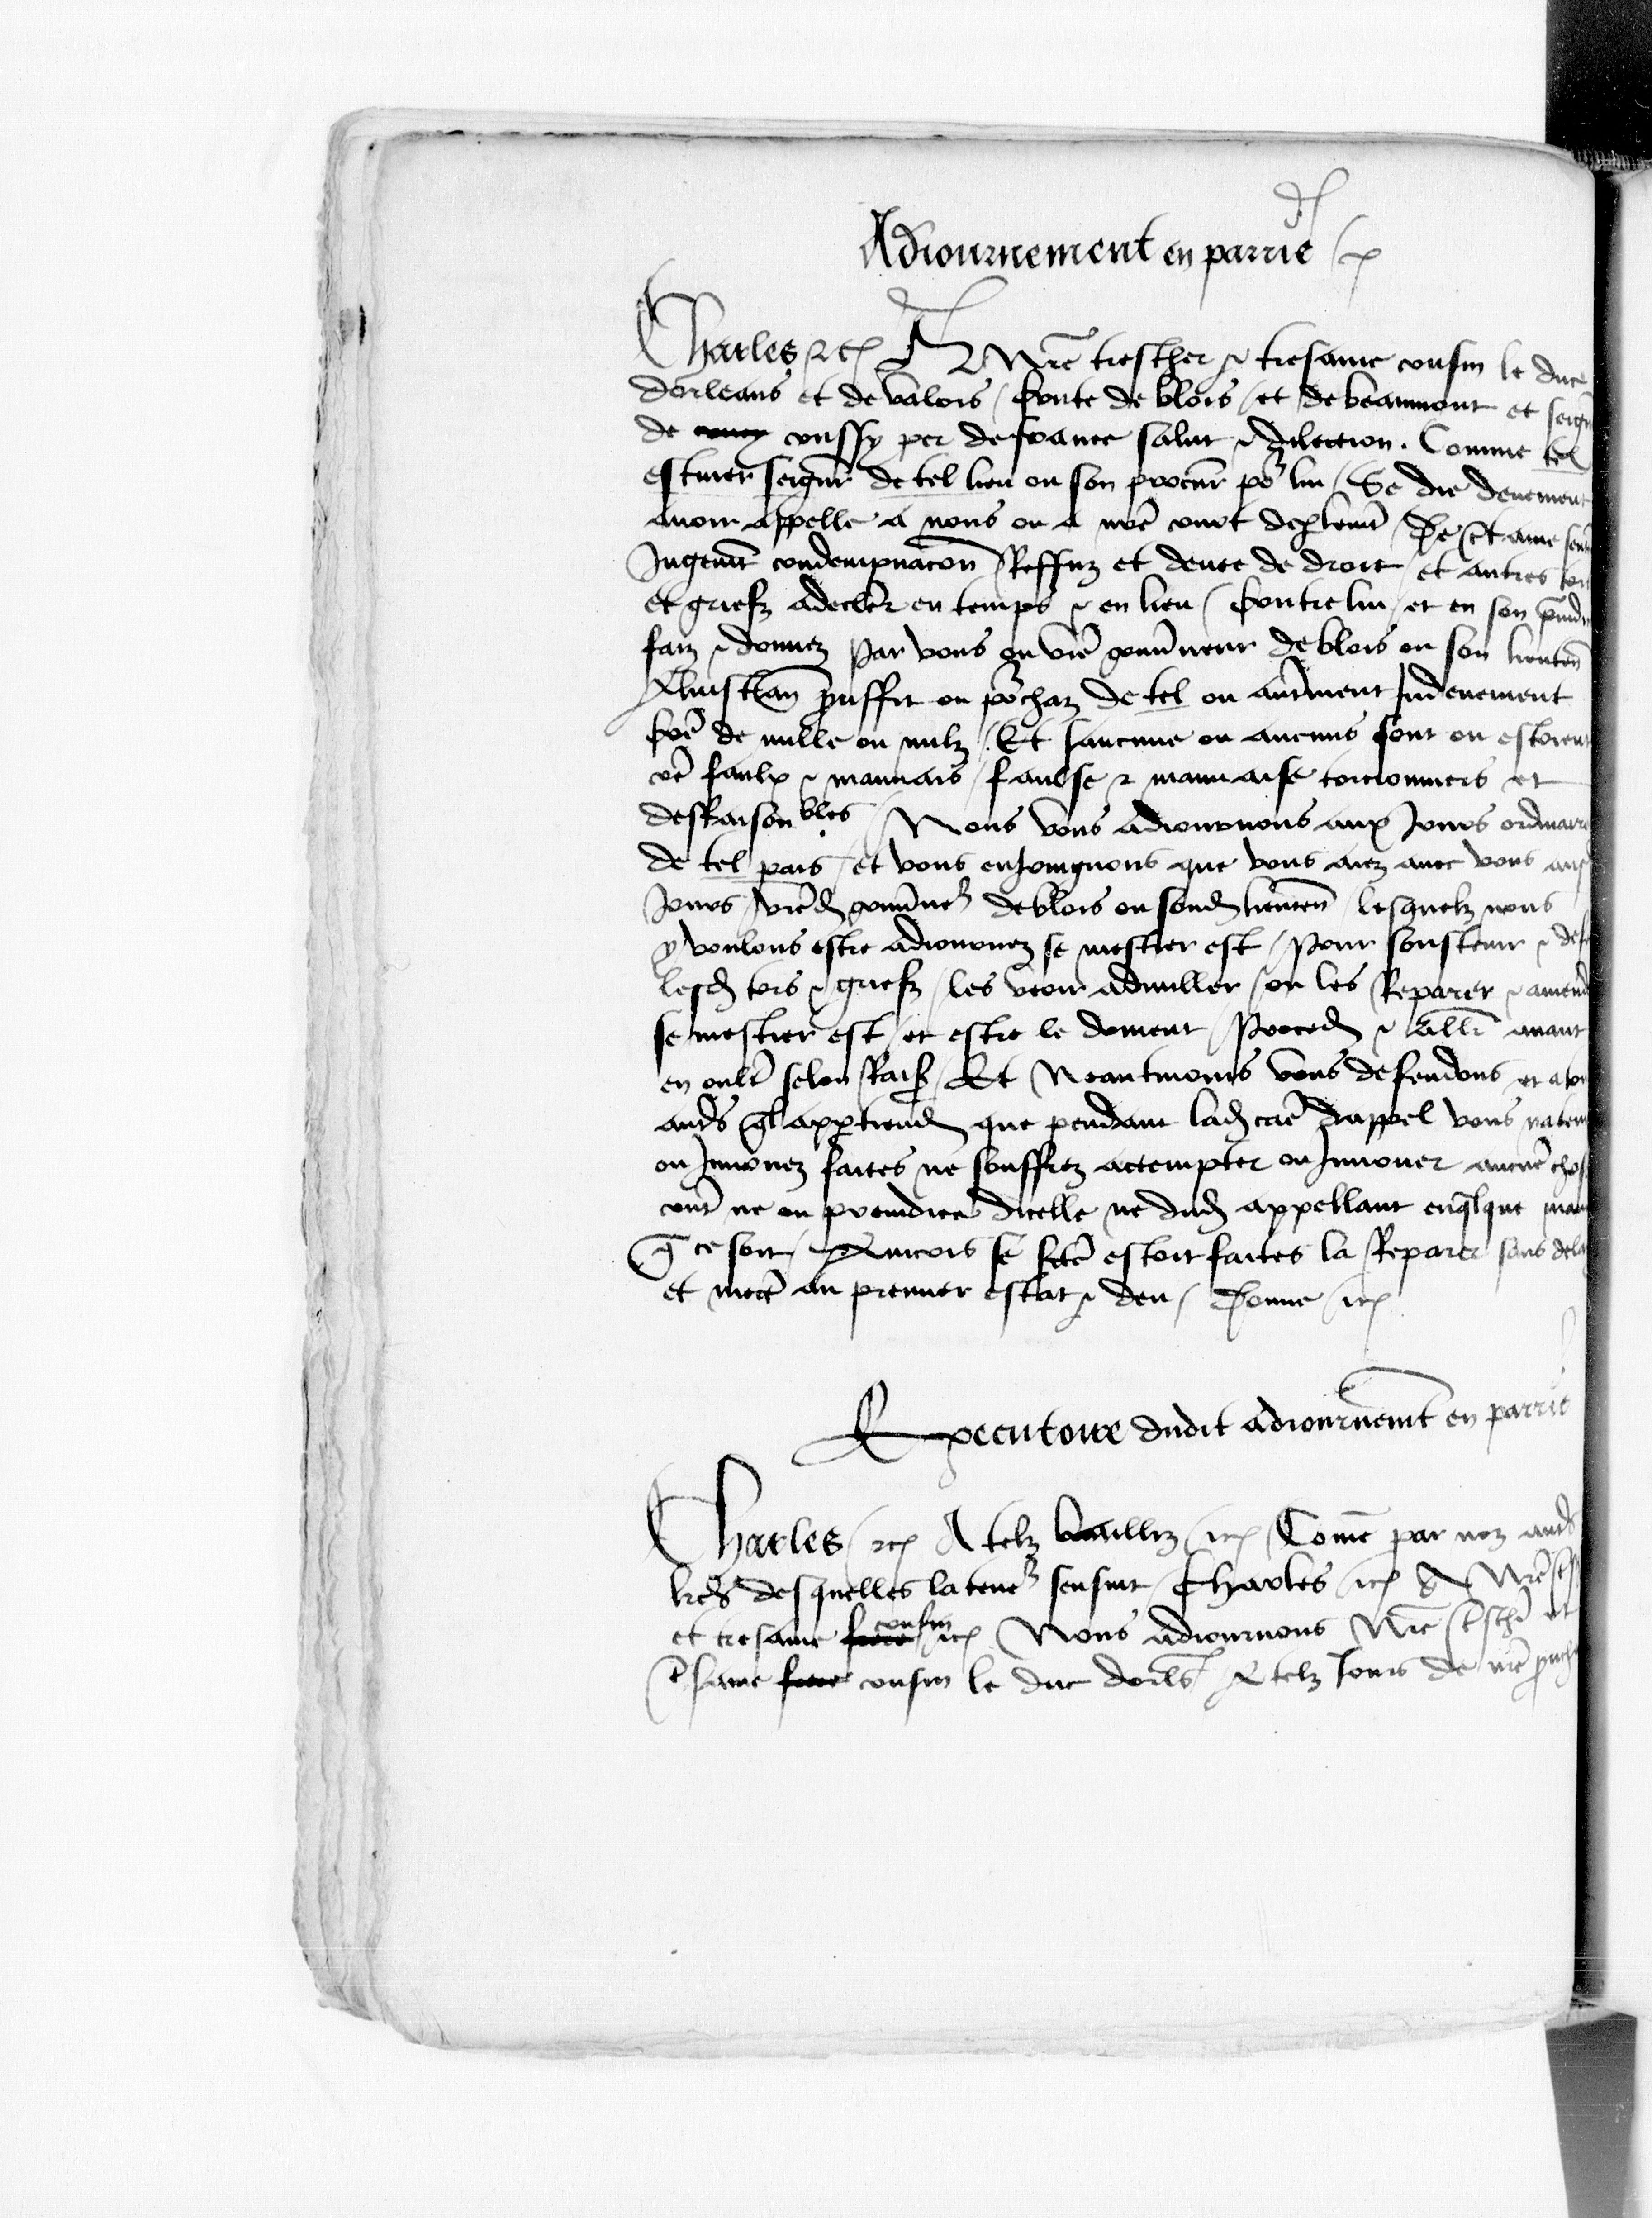 Adiournement en parrie
Charles etc A Nre trescher & tresame cousin le duc
dorleans et de valois / Conte de blois / et de beaumont et seigñ
de coussy per de france salut & dilection . Comme tel
escuier seigñr de tel lieu ou son procur̃ po᷑ lui / Se die deuement
auoir appelle a nous ou a nr̃e court de plemt̃ / De ctaine
Jugemt̃ condempnacõn Reffuz et deuee de droit / et autres
et griefz a decler̃ en temps & en lieu / Contre lui / et en son p̃iud
faiz & donnez Par vous ou vr̃e gouũneur de blois ou son lieuteñ
A linstan pruffit ou po᷑chaz de tel ou aut̃ment Indeuement
de nulle ou nulz / Et saucune ou aucuns sont ou estoient
cõe faulx & mauuais / faulse & mauuaise torcionniers et
desraisonbles / Nous vous adiournons aux Jours ordinair
de tel pais / et vous enJoingnons que vous aiez auec vous ausd
Jours / vr̃ed gouũne᷑ de blois ou sond lieuteñ / lesquelz nous
y voulons estre adiournez se mestier est / Pour soustenir & def
lesd tors & griefz / les veoir adnuller / ou les Reparer & amend
se mestier est / et estre le dement / Proced & allr̃ auant
en oultr̃ selon Rais / Et Neantmoins vous defendons et a to
auts ql appartiend que pendant lad cae dappel vous natem
ou Jnnouez faites ne souffrez actempter ou Jnnouer aucuẽ chos
contr̃ ne ou preiudice dicelle ne dud appellant en qlque man
q̃ ce soit / Aincois se fcẽ estoit faites la Reparer sans dela
et mectr̃ au premier estat & deu / Donne etc
Executoire dudit adiournemt̃ en parrie
Charles / etc A telz bailliz etc / Com̃e par noz auts
lrẽs desquelles la tene᷑ sensuit / Charles / etc A Nrẽ
et tresame frere cousin etc Nous adiournons Nrẽ tschr̃ et
t̃same frere cousin le duc dorls̃ A telz Jours de nrẽ